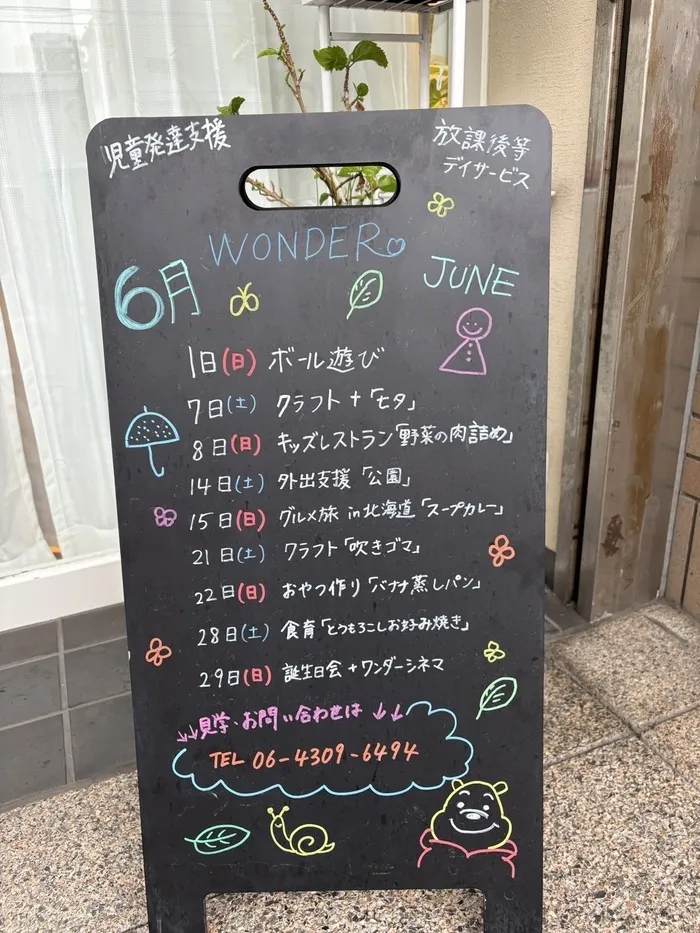 児童発達支援
放課後等
デイサービス
WONDER
6月
JUNE
1日(日) ボール遊び
7日(土) クラフト+「七夕」
8日(日) キッズレストラン「野菜の肉詰め」
14日(土) 外出支援「公園」
15日(日) グルメ旅 in北海道「スープカレー」
21日(土) クラフト「吹きゴマ」
22日(日) おやつ作り「バナナ蒸しパン」
28日(土) 食育「とうもろこしお好み焼き」
29日(日) 誕生日会+ワンダーシネマ
↓↓見学・お問い合わせは↓↓
TEL 06-4309-6494